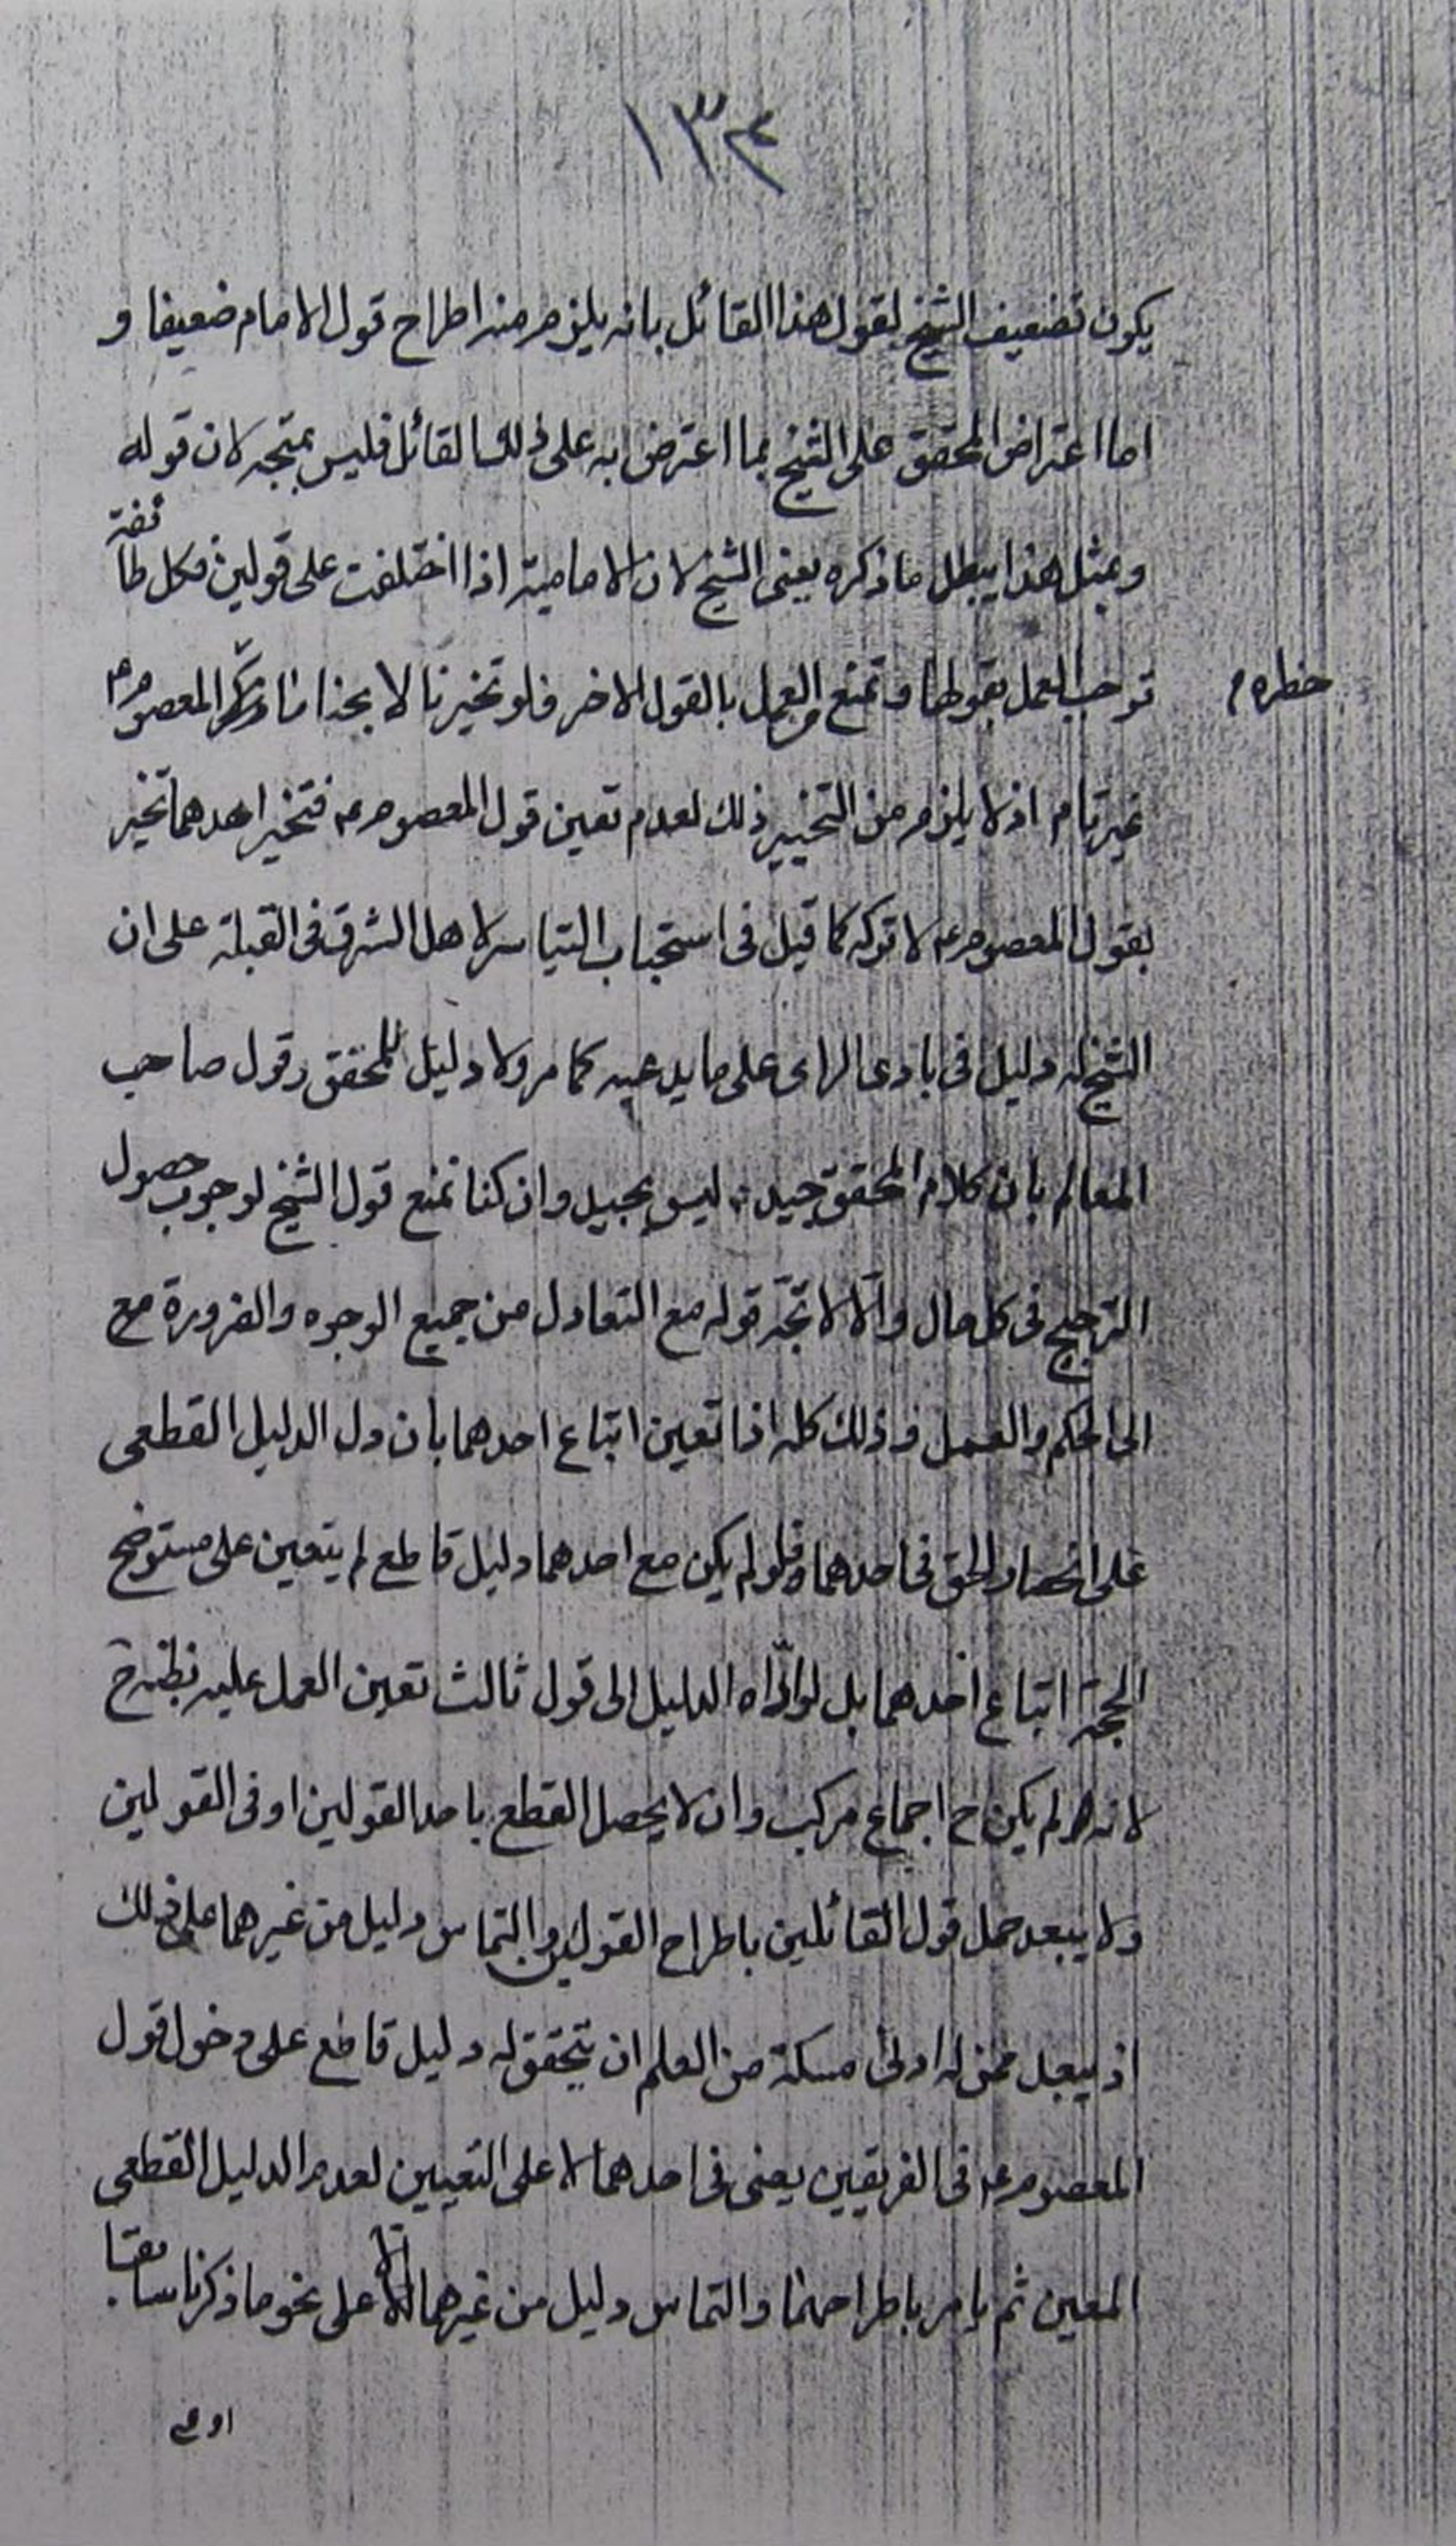 ١٣٤
يكون تضعيف الشيخ لقول هذا القائل بانه يلزم منه اطراح قول الامام ضعيفا و
اما اعتراض المحقق على الشيخ بما اعترض به على ذلك القائل فليس بمتجه لان قوله
وبمثل هذا يبطل ما ذكره يعنى الشيخ لان الامامية اذا اختلفت على قولين فكل طائفة
توجب العمل بقولها وتمنع من العمل بالقول الاخر فلو تخيرنا لابحنا ما حظره م المعصوم ع
غير تام اذ لا يلزم من التخيير ذلك لعدم تعين قول المعصوم ع فتخير احدهما تخير
بقول المعصوم ع لا تركه كما قيل فى استحباب التياسر لاهل الشرق فى القبلة على ان
الشيخ له دليل فى بادى الراى على ما يدعيه كما مر ولا دليل للمحقق وقول صاحب
المعالم بان كلام المحقق جيد ليس بجيد وان كنا نمنع قول الشيخ لوجوب حصول
الترجيح فى كل حال والّا لاتّجه قوله مع التعادل من جميع الوجوه والضرورة مع
الى الحكم والعمل وذلك كله اذا تعين اتباع احدهما بان دل الدليل القطعى
على انحصار الحق فى احدهما فلو لم يكن مع احدهما دليل قاطع لم يتعين على مستوضح
الحجة اتباع احدهما بل لو ادّاه الدليل الى قول ثالث تعين العمل عليه بظنه ح
لانه لم يكن ح اجماع مركب وان لا يحصل القطع باحد القولين او فى القولين
ولا يبعد حمل قول القائلين باطراح القولين والتماس دليل من غيرهما على ذلك
اذ يبعد ممن له ادنى مسكة من العلم ان يتحقق له دليل قاطع على دخول قول
المعصوم ع فى الفريقين يعنى فى احدهما لا على التعيين لعدم الدليل القطعى
المعين ثم يامر باطراحهما والتماس دليل من غيرهما الّا على نحو ما ذكرنا سابقا